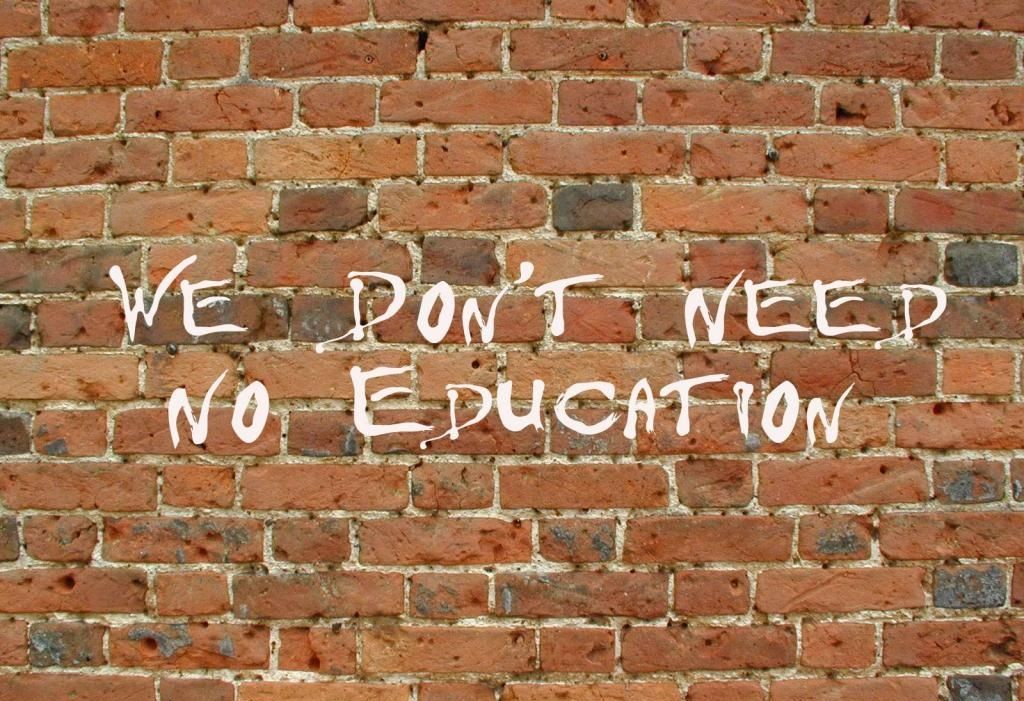 We Don't need
no Education